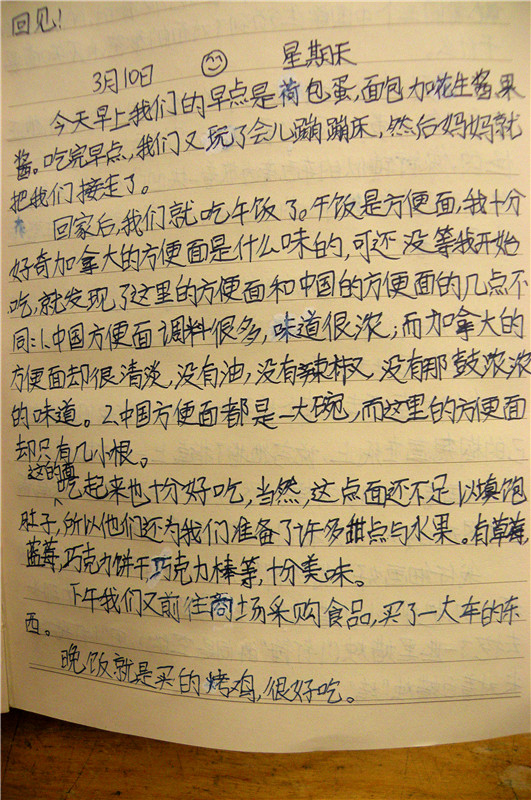 回见!
3月10日 星期天
今天早上我们的早点是荷包蛋,面包加花生酱果
酱。吃完早点,我们又玩了会儿蹦蹦床,然后妈妈就
把我们接走了。
回家后,我们就吃午饭了。午饭是方便面,我十分
好奇加拿大的方便面是什么味的,可还没等我开始
吃,就发现了这里的方便面和中国的方便面的几点不
同:1.中国方便面调料很多,味道很浓;而加拿大的
方便面却很清淡,没有油,没有辣椒,没有那鼓浓浓
的味道。2.中国方便面都是一大碗,而这里的方便面
却只有几小根。
这的面
吃起来也十分好吃,当然,这点面还不足以填饱
肚子,所以他们还为我们准备了许多甜点与水果。有草莓,
蓝莓,巧克力饼干,巧克力棒等,十分美味。
下午我们又前往商场采购食品,买了一大车的东
西。
晚饭就是买的烤鸡,很好吃。